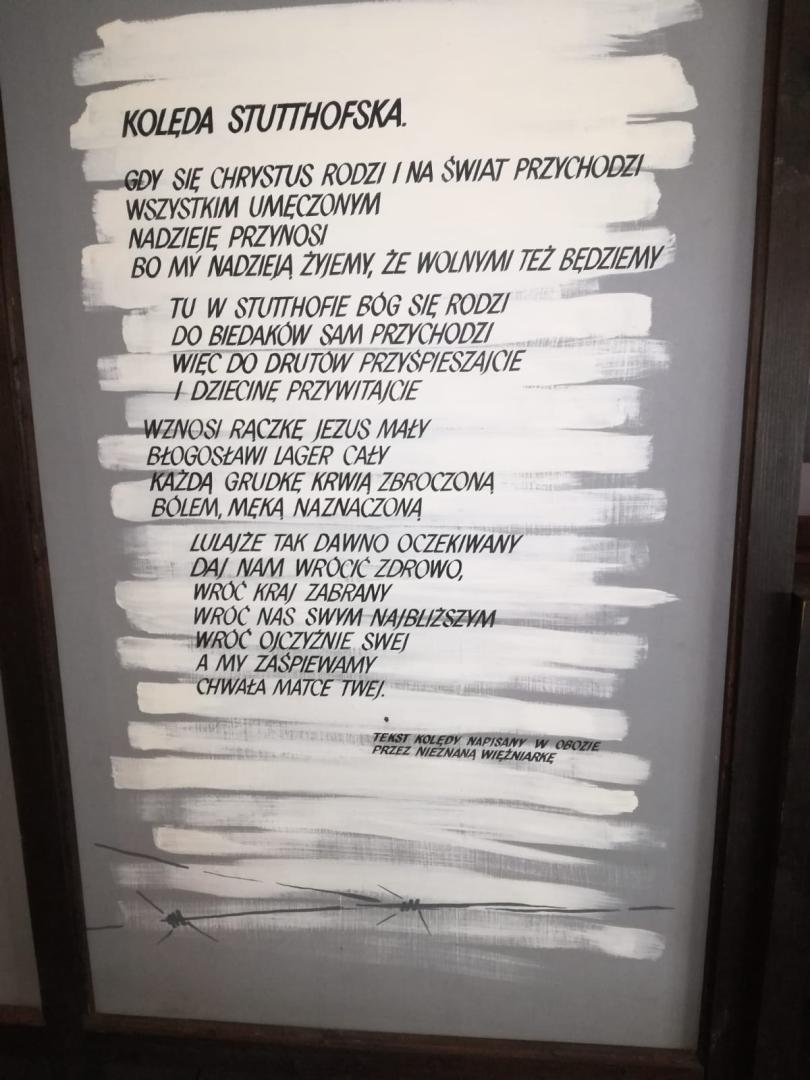 KOLĘDA STUTTHOFSKA.
GDY SIĘ CHRYSTUS RODZI I NA ŚWIAT PRZYCHODZI
WSZYSTKIM UMĘCZONYM
NADZIEJĘ PRZYNOSI
BO MY NADZIEJĄ ŻYJEMY, ŻE WOLNYMI TEŻ BĘDZIEMY
TU W STUTTHOFIE BÓG SIĘ RODZI
DO BIEDAKÓW SAM PRZYCHODZI
WIĘC DO DRUTÓW PRZYŚPIESZAJCIE
I DZIECINĘ PRZYWITAJCIE
WZNOSI RĄCZKĘ JEZUS MAŁY
BŁOGOSŁAWI LAGER CAŁY
KAŻDĄ GRUDKĘ KRWIĄ ZBROCZONĄ
BÓLEM, MĘKĄ NAZNACZONĄ
LULAJŻE TAK DAWNO OCZEKIWANY
DAJ NAM WRÓCIĆ ZDROWO,
WRÓĆ KRAJ ZABRANY
WRÓĆ NAS SWYM NAJBLIŻSZYM
WRÓĆ OJCZYŹNIE SWEJ
A MY ZAŚPIEWAMY
CHWAŁA MATCE TWEJ.
TEKST KOLĘDY NAPISANY W OBOZIE
PRZEZ NIEZNANĄ WIĘŹNIARKĘ